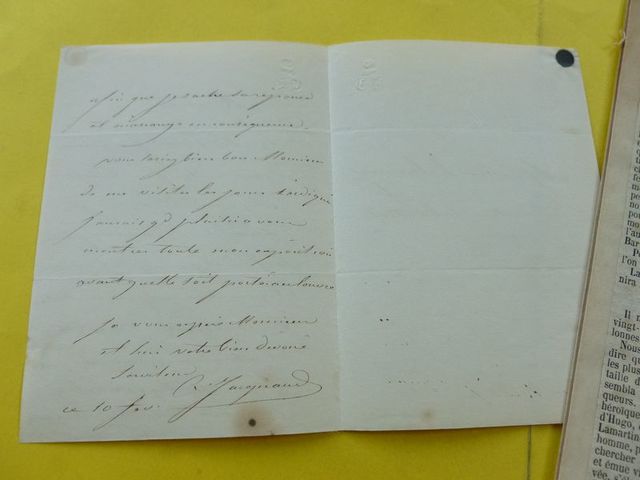 afin que je sache sa reponse
et m'arrange en conséquence.
vous serez bien bon Monsieur
de me visiter les jours indiqué
j'aurais gd plaisir a vous
montrer toute mon exposition
avant quelle soit portée au louvre
Je vous Monsieur
et suis votre bien devoué
Serviteur Jacquand
ce 10 fev.
Bar
l'on
nira
Il
vingt-
lonnes
Nous
dire qu
les plus
taille
sembla
queurs.
héroïque
d'Hugo,
Lamartin
homme, p
chercher
et émue vi
vée, s'él